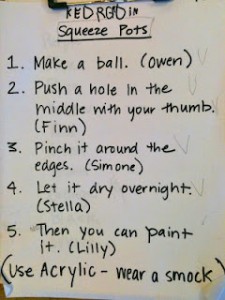 Squeeze Pots
1. Make a ball. (Owen)
2. Push a hole in the
middle with your thumb.
(Finn)
3. Pinch it around the
edges. (Simone)
4. Let it dry overnight.
(Stella)
5. Then you can paint
it. (Lilly)
(Use Acrylic - wear a smock)